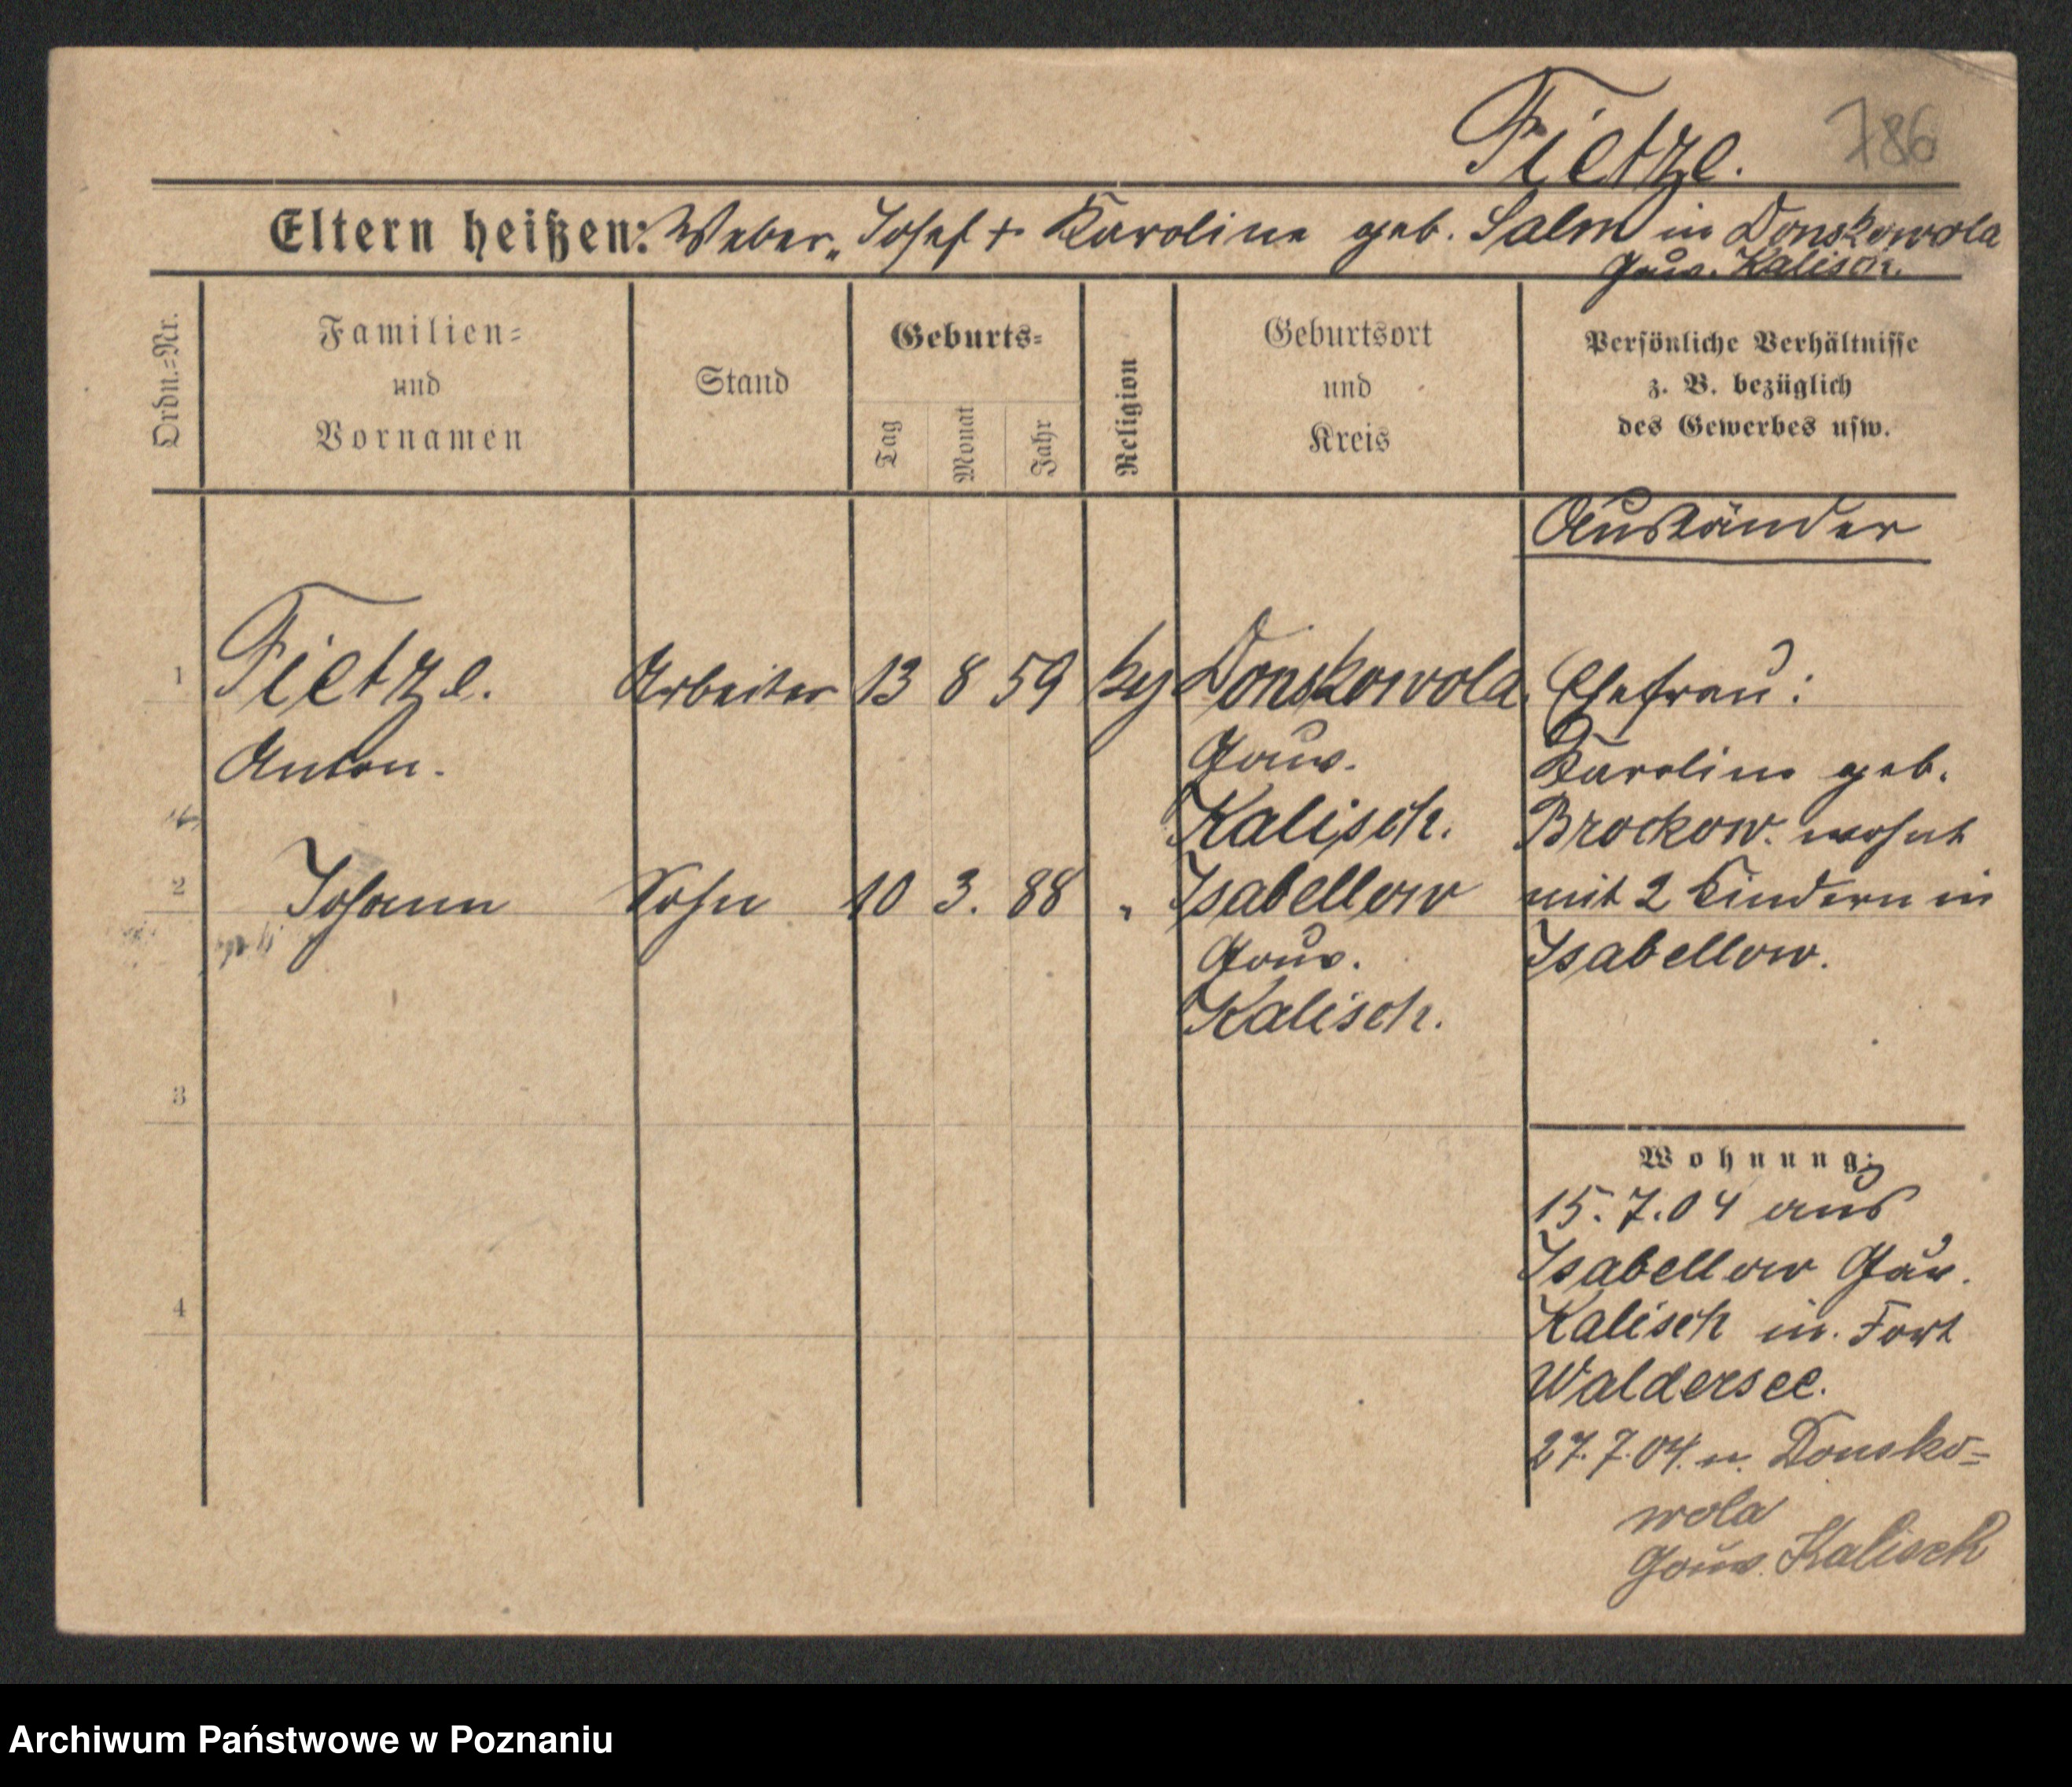 Fietze. 786
Eltern heißen: Weber, Josef + Karoline geb. Salm in Donskowola
Gouv. Kalisch.
Ordn.=Nr.
Familien=
und
Vornamen
Stand
Geburts=
Tag
Monat
Jahr
Religion
Geburtsort
und
Kreis
Persönliche Verhältnisse
z. B. bezüglich
des Gewerbes usw.
Ausländer
1 Fietze. Arbeiter 13 8 59 Donskowola Ehefrau:
Anton. Gouv. Karoline geb.
Kalisch. Brockow. wohnt
2 Johann Sohn 10 3. 88 " Isabellow mit 2 Kindern in
Gouv. Isabellow.
Kalisch.
3
Wohnung:
15.7.04 aus
Isabellow Gouv.
4 Kalisch in. Fort
Waldersee.
27.7.04. n. Donsko=
wola
Gouv. Kalisch
Archiwum Państwowe w Poznaniu